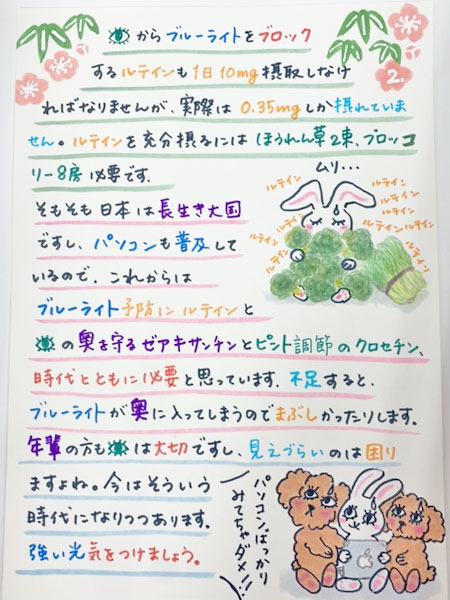 からブルーライトをブロック
2.
するルテインも1日10mg摂取しなけ
ればなりませんが、実際は0.35mgしか摂れていま
せん。ルテインを充分摂るにはほうれん草2束、ブロッコ
リー8房必要です。
ムリ...
ルテイン
ルテイン
ルテイン
ルテイン
ルテイン
ルテイン
ルテイン
ルテイン
ルテイン
ルテイン
ルテイン
そもそも日本は長生き大国
ですし、パソコンも普及して
いるので、これからは
ブルーライト予防にルテインと
の奥を守るゼアキサンチンとピント調節のクロセチン、
時代とともに必要と思っています。不足すると、
ブルーライトが奥に入ってしまうのでまぶしかったりします。
年輩の方もは大切ですし、見えづらいのは困り
ますよね。今はそういう
時代になりつつあります。
強い光気をつけましょう。
パソコンばっかり
みてちゃダメ!!